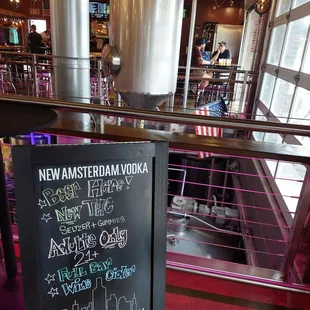 NEW AMSTERDAM. VODKA
Beer Here!
New THC
SELTZER + GUMMIES
Adults Only
21+
Full Bar
Wine Cider